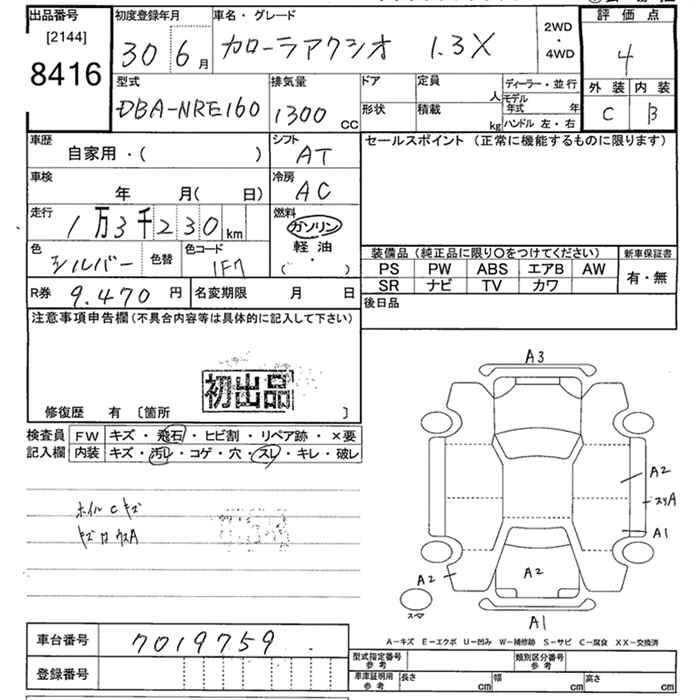 出品番号 初度登録年月 車名・グレード 2WD・4WD 評価点
[2144] 30 6月 カローラアクシオ 1.3X 4
8416 外装 内装
型式 排気量 ドア 定員 人 ディーラー・並行 C B
DBA-NRE160 1300 CC 形状 積載 kg モデル年式 年
ハンドル 左・右
車歴 シフト セールスポイント (正常に機能するものに限ります)
自家用・( ) AT
車検 冷房
年 月( 日) AC
走行 燃料
1万3千230km ガソリン
色 色替 色コード 軽油
シルバー 1F7 ( ・ )
装備品 (純正品に限り○をつけてください) 新車保証書
PS PW ABS エアB AW 有・無
SR ナビ TV カワ
R券 9.470 円 名変期限 月 日 後日品
注意事項申告欄(不具合内容等は具体的に記入して下さい)
初出品
修復歴 有 〔箇所 〕
検査員 FW キズ・飛石・ヒビ割・リペア跡・×要
記入欄 内装 キズ・汚レ・コゲ・穴・スレ・キレ・破レ
A3
A2
スリA
A1
A2
A2
A1
ホイルCキズ
A-キズ E-エクボ U-凹み W-補修跡 S-サビ C-腐食 XX-交換済
車台番号 7019759
登録番号
型式指定番号 参考 類別区分番号 参考
車庫証明用 参考 長さ cm 幅 cm 高さ cm